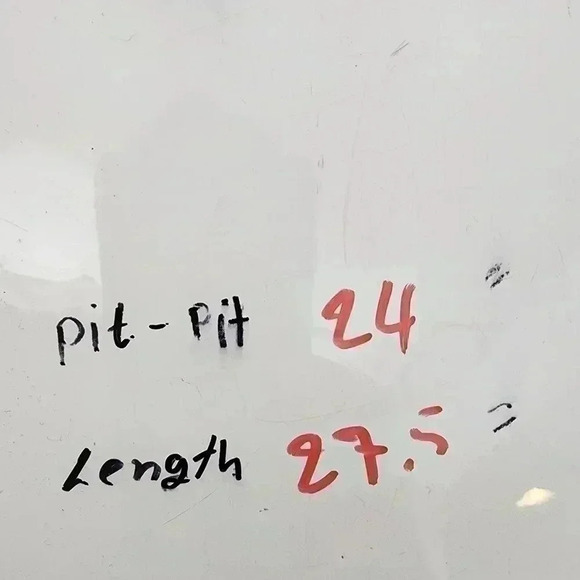 pit - pit 24 "
Length 27.5 "